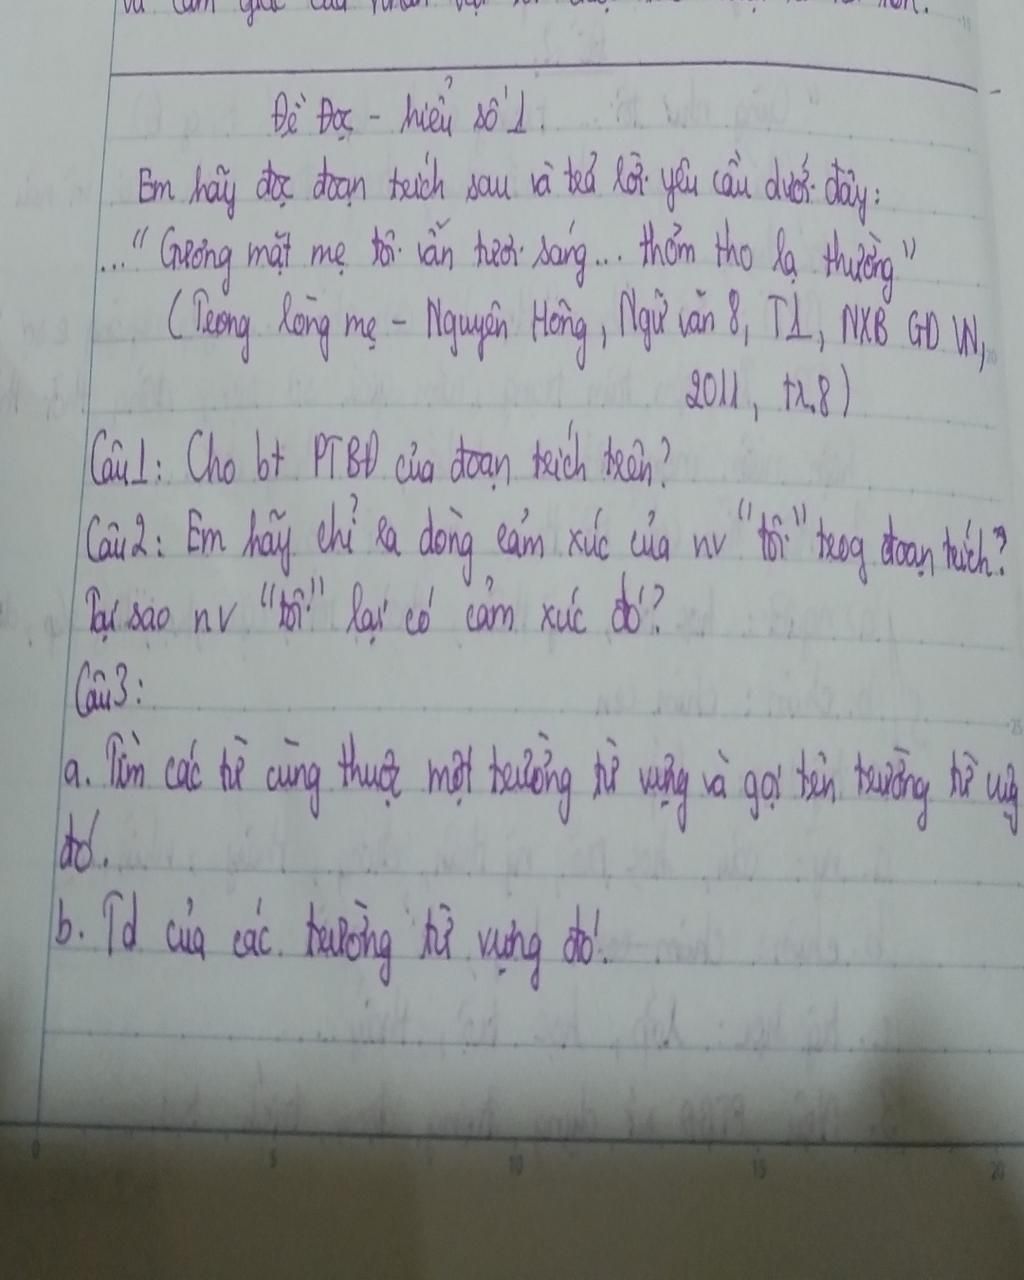 Đề Đọc - hiểu số 1.
Em hãy đọc đoạn trích sau và trả lời yêu cầu dưới đây:
... "Gương mặt mẹ tôi vẫn tươi sáng... thơm tho lạ thường"
(Trong lòng mẹ - Nguyên Hồng, Ngữ văn 8, T1, NXB GD VN,
2011, tr.8)
Câu 1: Cho bt PTBĐ của đoạn trích trên?
Câu 2: Em hãy chỉ ra dòng cảm xúc của nv "tôi" trog đoạn trích?
Tại sao nv "tôi" lại có cảm xúc đó?
Câu 3:
a. Tìm các từ cùng thuộc một trường từ vựng và gọi tên trường từ vựg
đó.
b. Td của các trường từ vựng đó.
0 5 10 15 20